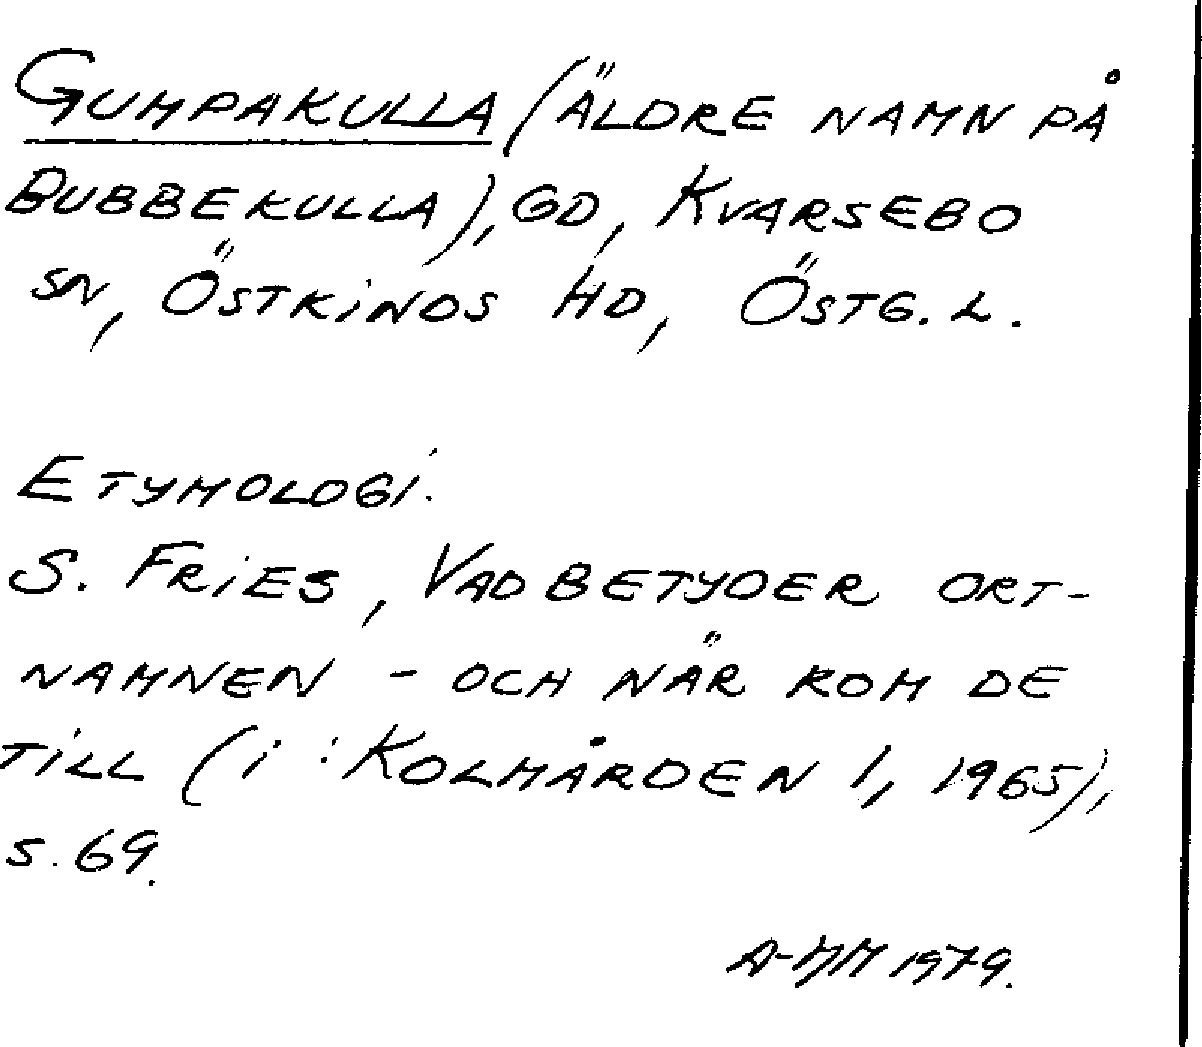 GUMPAKULLA (ÄLDRE NAMN PÅ
BUBBEKULLA), GD, KVARSEBO
SN, ÖSTKINDS HD, ÖSTG. L.
ETYMOLOGI.
S. FRIES, VAD BETYDER ORT-
NAMNEN - OCH NÄR KOM DE
TILL (I: KOLMÅRDEN 1, 1965),
S. 69.
1979.